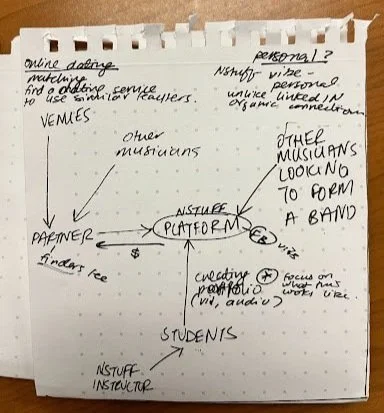 online dating
matching
find a dating service
to use similar teachers.
personal?
Nstuff vibe -
personal
unlike linked IN
organic connection
VENUES
other
musicians
OTHER
MUSICIANS
LOOKING
TO FORM
A BAND
NSTUFF
PLATFORM
PARTNER
$
finders fee
creating
portfolio
(vid, audio)
focus on
what this
looks like.
STUDENTS
NSTUFF
INSTRUCTOR